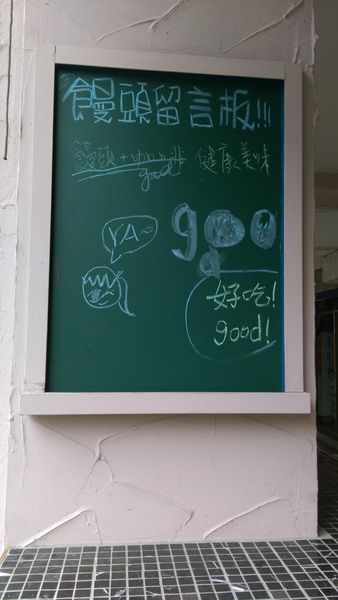 饅頭留言板!!!
饅頭+咖啡 健康美味
good
YA~
goo
d
好吃!
good!